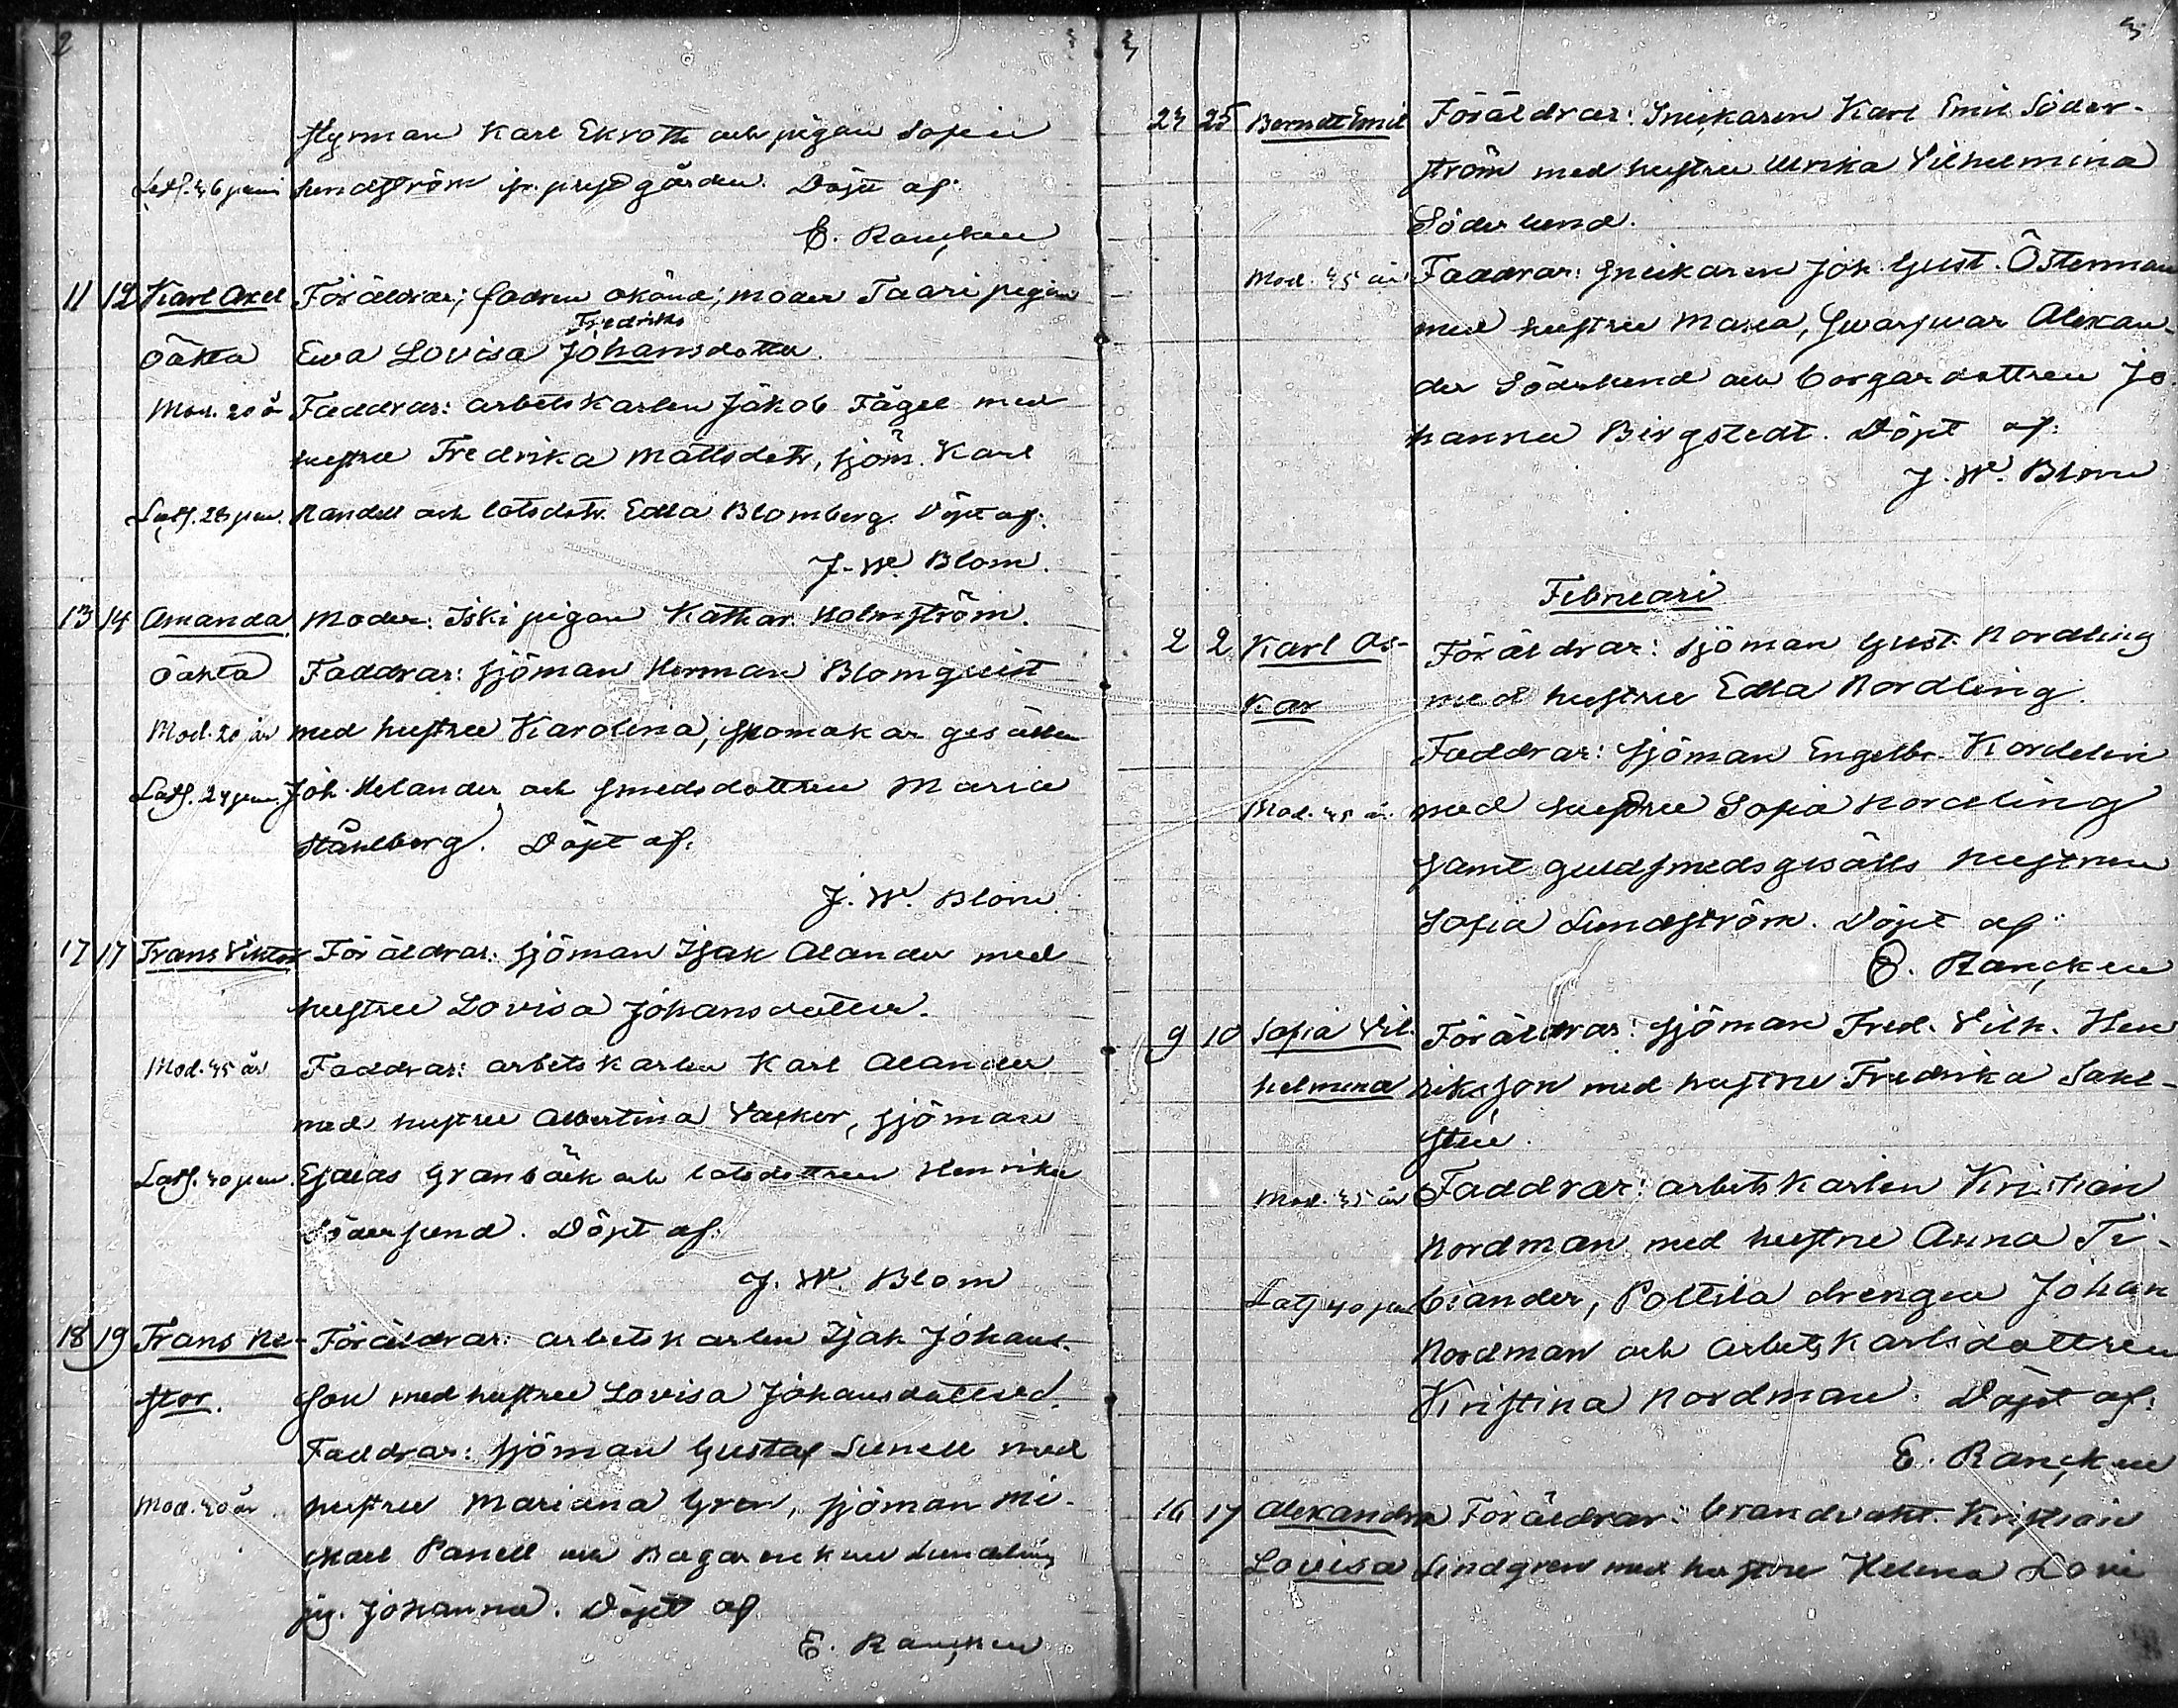 2
Styrman Karl Ekroth och pigan Sofia
Lindström fr. prestgården. Döpt af:
E. Rancken
11 12 Karl Axel Föräldrar; fadren okänd; moder Taari pigan
Fredriks
oäkta Ewa Lovisa Johansdotter.
Mod. 20 år Faddrar: arbetskarlen Jakob Fågel med
hustru Fredrika Mattsdotr, sjöm. Karl
Randell och lotsdotr. Edla Blomberg. Döpt af:
J. W. Blom.
13 14 Amanda Moder: Iski pigan Kathar. Holmström.
oäkta Faddrar: sjöman Herman Blomquist
Mod. 20 år med hustru Karolina, skomakar gesällen
Joh. Helander och smedsdottren Maria
Ståhlberg. Döpt af:
J. W. Blom
17 17 Frans Viktor Föräldrar: sjöman Isak Alander med
hustru Lovisa Johansdotter.
Mod. 45 år Faddrar: arbetskarlen Karl Alander
med hustru Albertina Vacker, sjöman
Esaias Granbäck och lotsdottren Henrika
Södersund. Döpt af:
J. W. Blom
18 19 Frans Ne- Föräldrar: arbetskarlen Isak Johans-
stor. son med hustru Lovisa Johansdotter.
Faddrar: sjöman Gustaf Sunell med
Mod. 40 år hustru Mariana Gren, sjöman Mi-
kael Panell och Bagar enkan Lundelin
pig. Johanna. Döpt af
E. Rancken
3
24 25 Berndt Emil Föräldrar: Snickaren Karl Emil Söder-
ström med hustru Ulrika Vilhelmina
Söderlund.
Mod. 45 år Faddrar: Snickaren Joh. Gust. Österman
med hustru Maria, Swarfwar Alexan-
der Söderlund och borgardottren Jo-
hanna Bergstedt. Döpt af:
J. W. Blom
Februari
2 2 Karl Os- Föräldrar: sjöman Gust. Nordling
kar med hustru Edla Nordling.
Faddrar: sjöman Engelbr. Kordelin
Mod. 45 år med hustru Sofia Nordling
samt guldsmedsgesälls hustrun
Sofia Lundström. Döpt af:
E. Rancken
9 10 Sofia Vil- Föräldrar: sjöman Fred. Vilh. Hen
helmina riksson med hustru Fredrika Sahl-
sten.
Mod. 35 år Faddrar: arbetskarlen Kristian
Nordman med hustru Anna Ti-
biander, Poltila drengen Johan
Nordman och arbetskarlsdottren
Kristina Nordman. Döpt af:
E. Rancken
16 17 Alexandra Föräldrar: brandvakt. Kristian
Lovisa Lindgren med hustru Helena Lovi